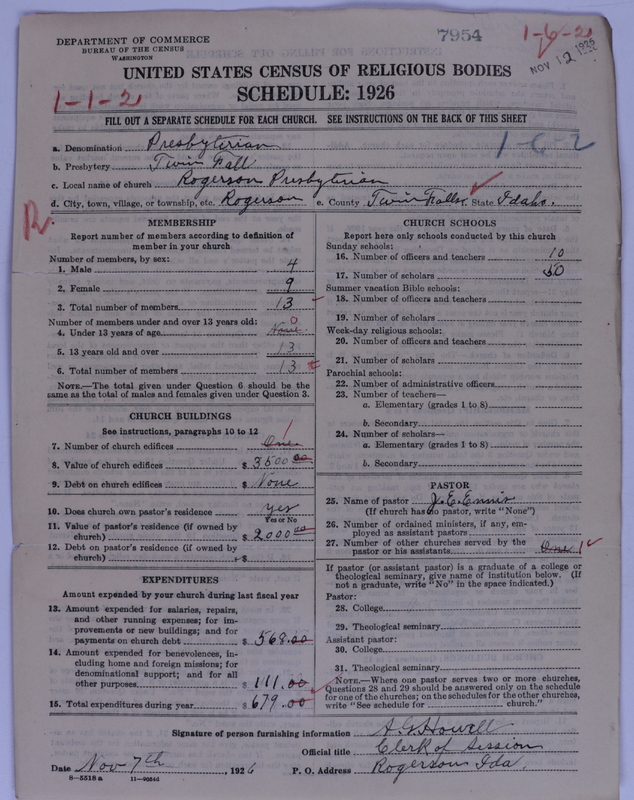 DEPARTMENT OF COMMERCE
BUREAU OF THE CENSUS
WASHINGTON
7954
1-6-2
NOV 12 1926
UNITED STATES CENSUS OF RELIGIOUS BODIES
SCHEDULE: 1926
1-1-2
FILL OUT A SEPARATE SCHEDULE FOR EACH CHURCH. SEE INSTRUCTIONS ON THE BACK OF THIS SHEET
1-6-2
a. Denomination Presbyterian
b. Presbytery Twin Fall
c. Local name of church Rogerson Presbyterian
d. City, town, village, or township, etc. Rogerson e. County Twin Falls. State Idaho.
R.
MEMBERSHIP
Report number of members according to definition of
member in your church
Number of members, by sex:
1. Male 4
2. Female 9
3. Total number of members 13
Number of members under and over 13 years old: 0
4. Under 13 years of age None
5. 13 years old and over 13
6. Total number of members 13
NOTE.—The total given under Question 6 should be
same as the total of males and females given under Question 3.
CHURCH BUILDINGS
See instructions, paragraphs 10 to 12
7. Number of church edifices One 1
8. Value of church edifices $ 3500.00
9. Debt on church edifices $ None
10. Does church own pastor's residence yes
Yes or No
11. Value of pastor's residence (if owned by
church) $ 2000.00
12. Debt on pastor's residence (if owned by
church) $
EXPENDITURES
Amount expended by your church during last fiscal year
13. Amount expended for salaries, repairs,
and other running expenses; for im-
provements or new buildings; and for
payments on church debt $ 568.00
14. Amount expended for benevolences, in-
cluding home and foreign missions; for
denominational support; and for all
other purposes $ 111.00
15. Total expenditures during year $ 679.00
CHURCH SCHOOLS
Report here only schools conducted by this church
Sunday schools:
16. Number of officers and teachers 10
17. Number of scholars 50
Summer vacation Bible schools:
18. Number of officers and teachers
19. Number of scholars
Week-day religious schools:
20. Number of officers and teachers
21. Number of scholars
Parochial schools:
22. Number of administrative officers
23. Number of teachers—
a. Elementary (grades 1 to 8)
b. Secondary
24. Number of scholars—
a. Elementary (grades 1 to 8)
b. Secondary
PASTOR
25. Name of pastor J. E. Ennis
(If church has no pastor, write "None")
26. Number of ordained ministers, if any, em-
ployed as assistant pastors
27. Number of other churches served by the
pastor or his assistants One 1
If pastor (or assistant pastor) is a graduate of a college or
theological seminary, give name of institution below. (If
not a graduate, write "No" in the space indicated.)
Pastor:
28. College
29. Theological seminary
Assistant pastor:
30. College
31. Theological seminary
NOTE.—Where one pastor serves two or more churches,
Questions 28 and 29 should be answered only on the schedule
for one of the churches; on the schedules for the other churches,
write "See schedule for church."
Signature of person furnishing information A. G. Howell
Official title Clerk of Session
Date Nov 7th, 1926 P. O. Address Rogerson Ida.
8-5518 a